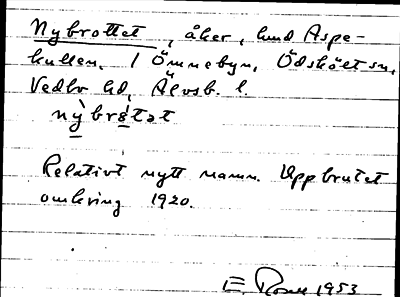 Nybrottet, åker, hmd Aspe-
kullen. / Ömmebyn, Ödsköelt sn,
Vedbo hd, Älvsb. l.
nỳbrɷ́tət
Relativt nytt namn. Uppbrutet
omkring 1920.
E. 1953